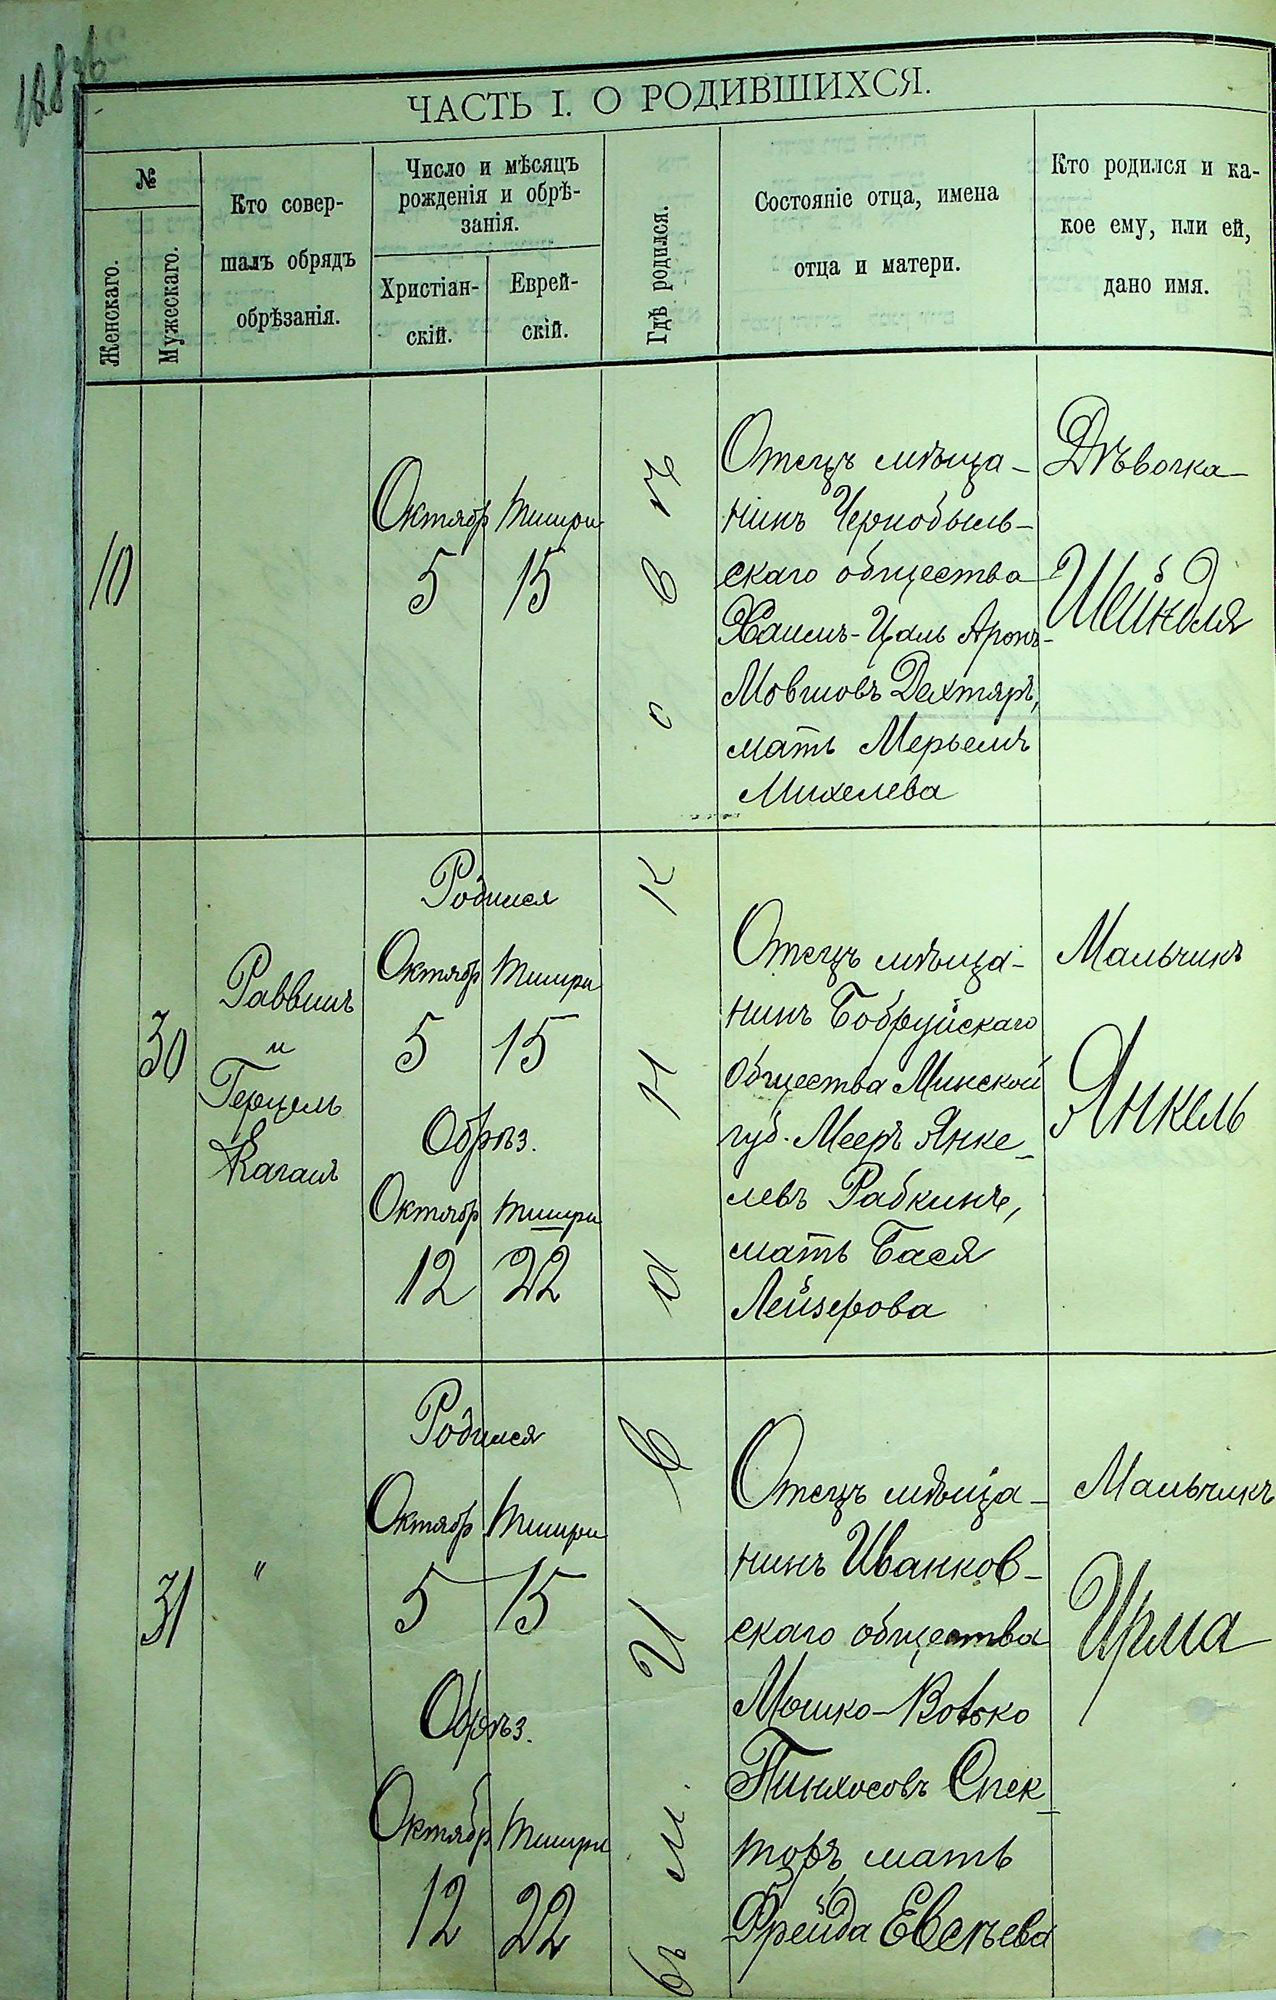 ЧАСТЬ I. О РОДИВШИХСЯ.
№
Женскаго.
Мужескаго.
Кто совер-
шалъ обрядъ
обрѣзанія.
Число и мѣсяцъ
рожденія и обрѣ-
занія.
Христіан-
скій.
Еврей-
скій.
Гдѣ родился.
Состояніе отца, имена
отца и матери.
Кто родился и ка-
кое ему, или ей,
дано имя.
10
Октябр Тишри
5 15
Отецъ мѣща-
нинъ Чернобыль-
скаго общества
Хаимъ-Цаль Аронъ-
Мовшовъ Дехтяръ,
мать Мерьемъ
Михелева
Дѣвочка
Шейндля
30
Раввинъ
и
Герцель
Каганъ
Родился
Октябр Тишри
5 15
Обрѣз.
Октябр Тишри
12 22
Отецъ мѣща-
нинъ Бобруйскаго
общества Минской
губ. Мееръ Янке-
левъ Рабкинъ,
мать Бася
Лейзерова
Мальчикъ
Янкель
31
"
Родился
Октябр Тишри
5 15
Обрѣз.
Октябр Тишри
12 22
въ м. Иванковѣ
Отецъ мѣща-
нинъ Иванков-
скаго общества
Мошко-Волько
Пинхосовъ Спек-
торъ, мать
Фрейда Евсѣева
Мальчикъ
Ирма